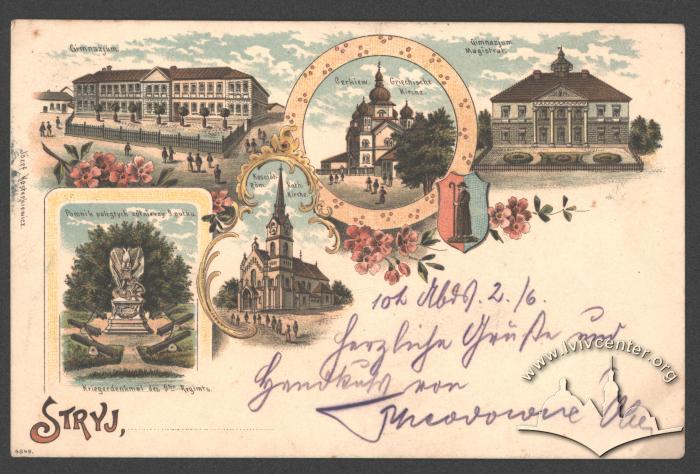 Gimnazjum.
Gimnazjum
Magistrat.
Cerkiew. Griechische
Kirche.
Kościół Kath.
röm. Kirche.
Józef
Pomnik poległych żołnierzy 9. pułku.
Kriegerdenkmal des 9ten Regimts.
STRYJ,
2./6.
Herzliche Grüße und
Handkuss von
www.lvivcenter.org